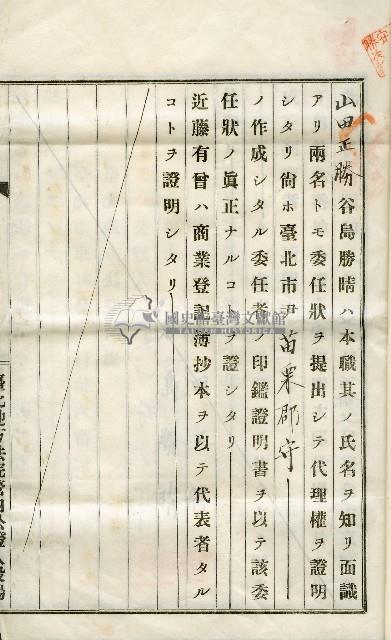 山田正勝谷島勝晴ハ本職其ノ氏名ヲ知リ面識
アリ兩名トモ委任狀ヲ提出シテ代理權ヲ證明
シタリ尙ホ臺北市尹苗栗郡守
ノ作成シタル委任者ノ印鑑證明書ヲ以テ該委
任狀ノ眞正ナルコトヲ證シタリ
近藤有曾ハ商業登記簿抄本ヲ以テ代表者タル
コトヲ證明シタリ
國史館臺灣文獻館
TAIWAN HISTORICA